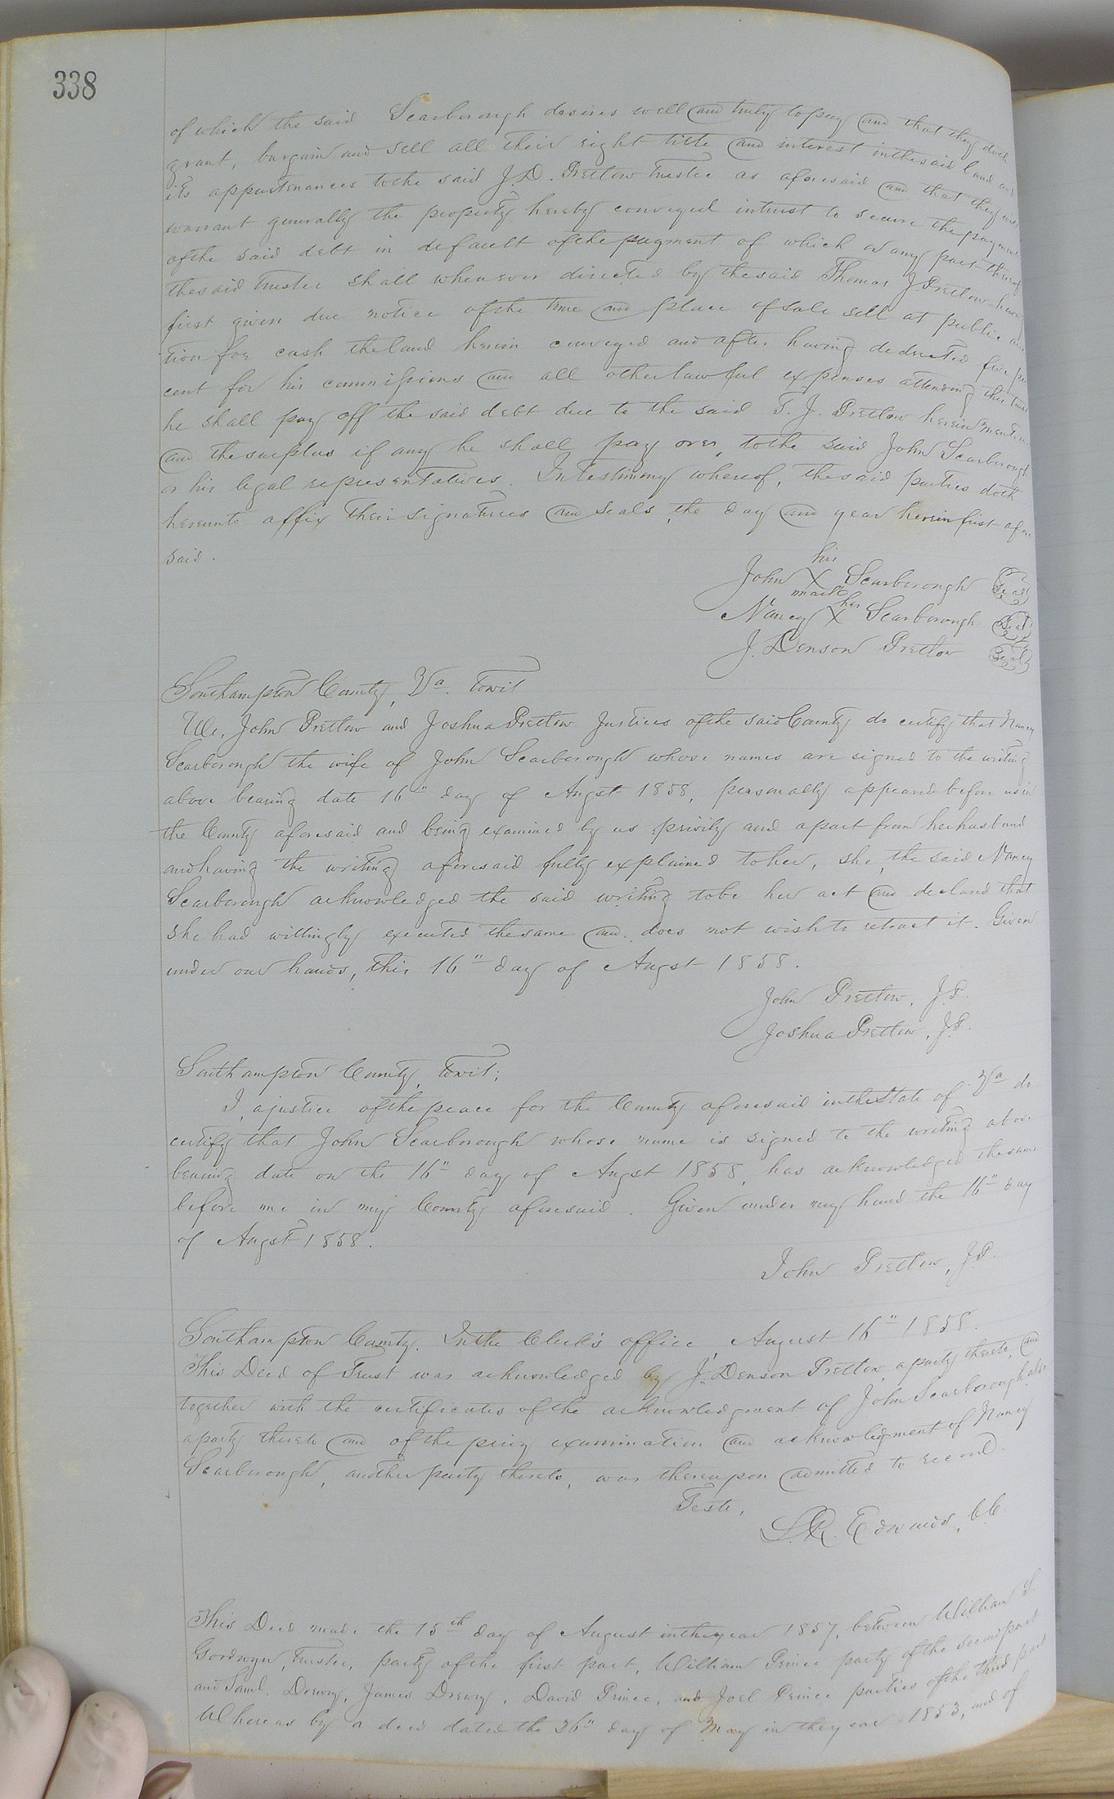 338
of which the said Scarborough desires well and truly to pay and that they doth
grant, bargain and sell all their right title and interest in the said land and
its appurtenances to the said J. D. Pretlow Trustee as aforesaid and that they
warrant generally the property hereby conveyed intrust to secure the payment
of the said debt in default of the payment of which or any part thereof
the said Trustee shall whenever directed by the said Thomas J Pretlow
first given due notice of the time and place of sale sell at public
tion for cash the land herein conveyed and after having deducted five per
cent for his commissions and all other lawful expenses attending this trust
he shall pay off the said debt due to the said T. J. Pretlow herein
and the surplus if any he shall pay over, to the said John Scarborough
or his legal representatives. In testimony whereof, the said parties doth
hereunto affix their signatures and seals the day and year herein first afore
said.
his
John X Scarborough Seal
mark her
Nancy X Scarborough Seal
J. Denson Pretlow Seal
Southampton County, Va. Towit
We, John Pretlow and Joshua Pretlow Justices of the said County do certify that Nancy
Scarborough the wife of John Scarborough whose names are signed to the writing
above bearing date 16" day of Augst 1858, personally appeared before us in
the County aforesaid and being examined by us privily and apart from her husband
and having the writing aforesaid fully explained to her, she, the said Nancy
Scarborough acknowledged the said writing to be her act and declared that
she had willingly executed the same and does not wish to retract it. Given
under our hands, this 16" day of Augst 1858.
John Pretlow, J.P.
Joshua Pretlow, J.P.
Southampton County, Towit;
I, a justice of the peace for the County aforesaid in the State of Va do
certify that John Scarborough whose name is signed to the writing above
bearing date on the 16" day of Augst 1858, has acknowledged the same
before me in my County aforesaid. Given under my hand the 16" day
of Augst 1858.
John Pretlow, J.P.
Southampton County. In the Clerk's office, August 16" 1858.
This Deed of Trust was acknowledged by J. Denson Pretlow, a party thereto, and
together with the certificates of the acknowledgment of John Scarborough also
a party thereto and of the privy examination and acknowledgment of Nancy
Scarborough, another party thereto, was thereupon admitted to record.
Teste,
L. R. Edwards, C.C.
This Deed made the 15th day of August in the year 1857, between William S.
Goodwyn, Trustee, party of the first part, William Prince party of the second part
and Saml. Drewry, James Drewry, David Prince, and Joel Prince parties of the third part
Whereas by a deed dated the 26" day of May in the year 1853, and of